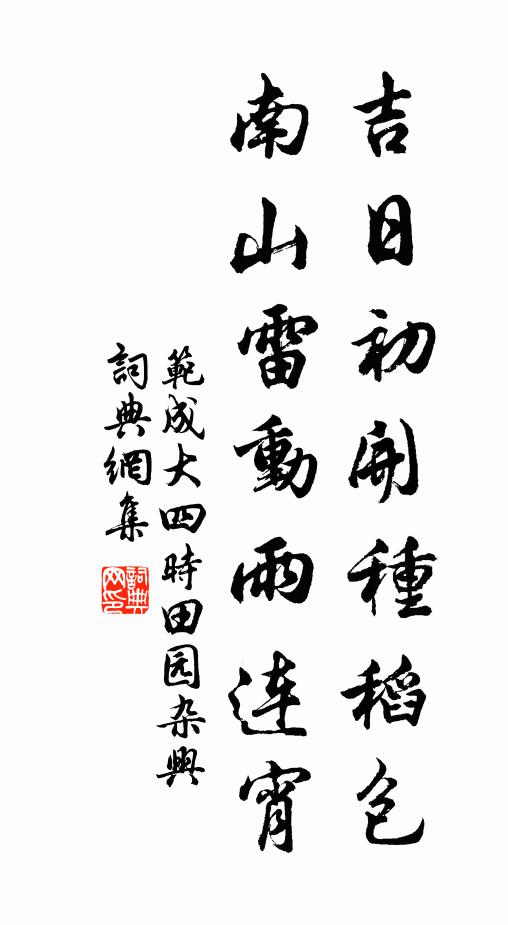 吉日初開種稻包
南山雷動雨连宵
範成大四時田园杂興
詞典網集
詞典网印